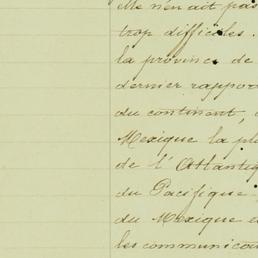 Me n'en ait pas
trop difficiles.
la province de
dernier rapport
du continent,
Mexique la pl
de l'Atlantiq
du Pacifique.
du Mexique e
les communicat